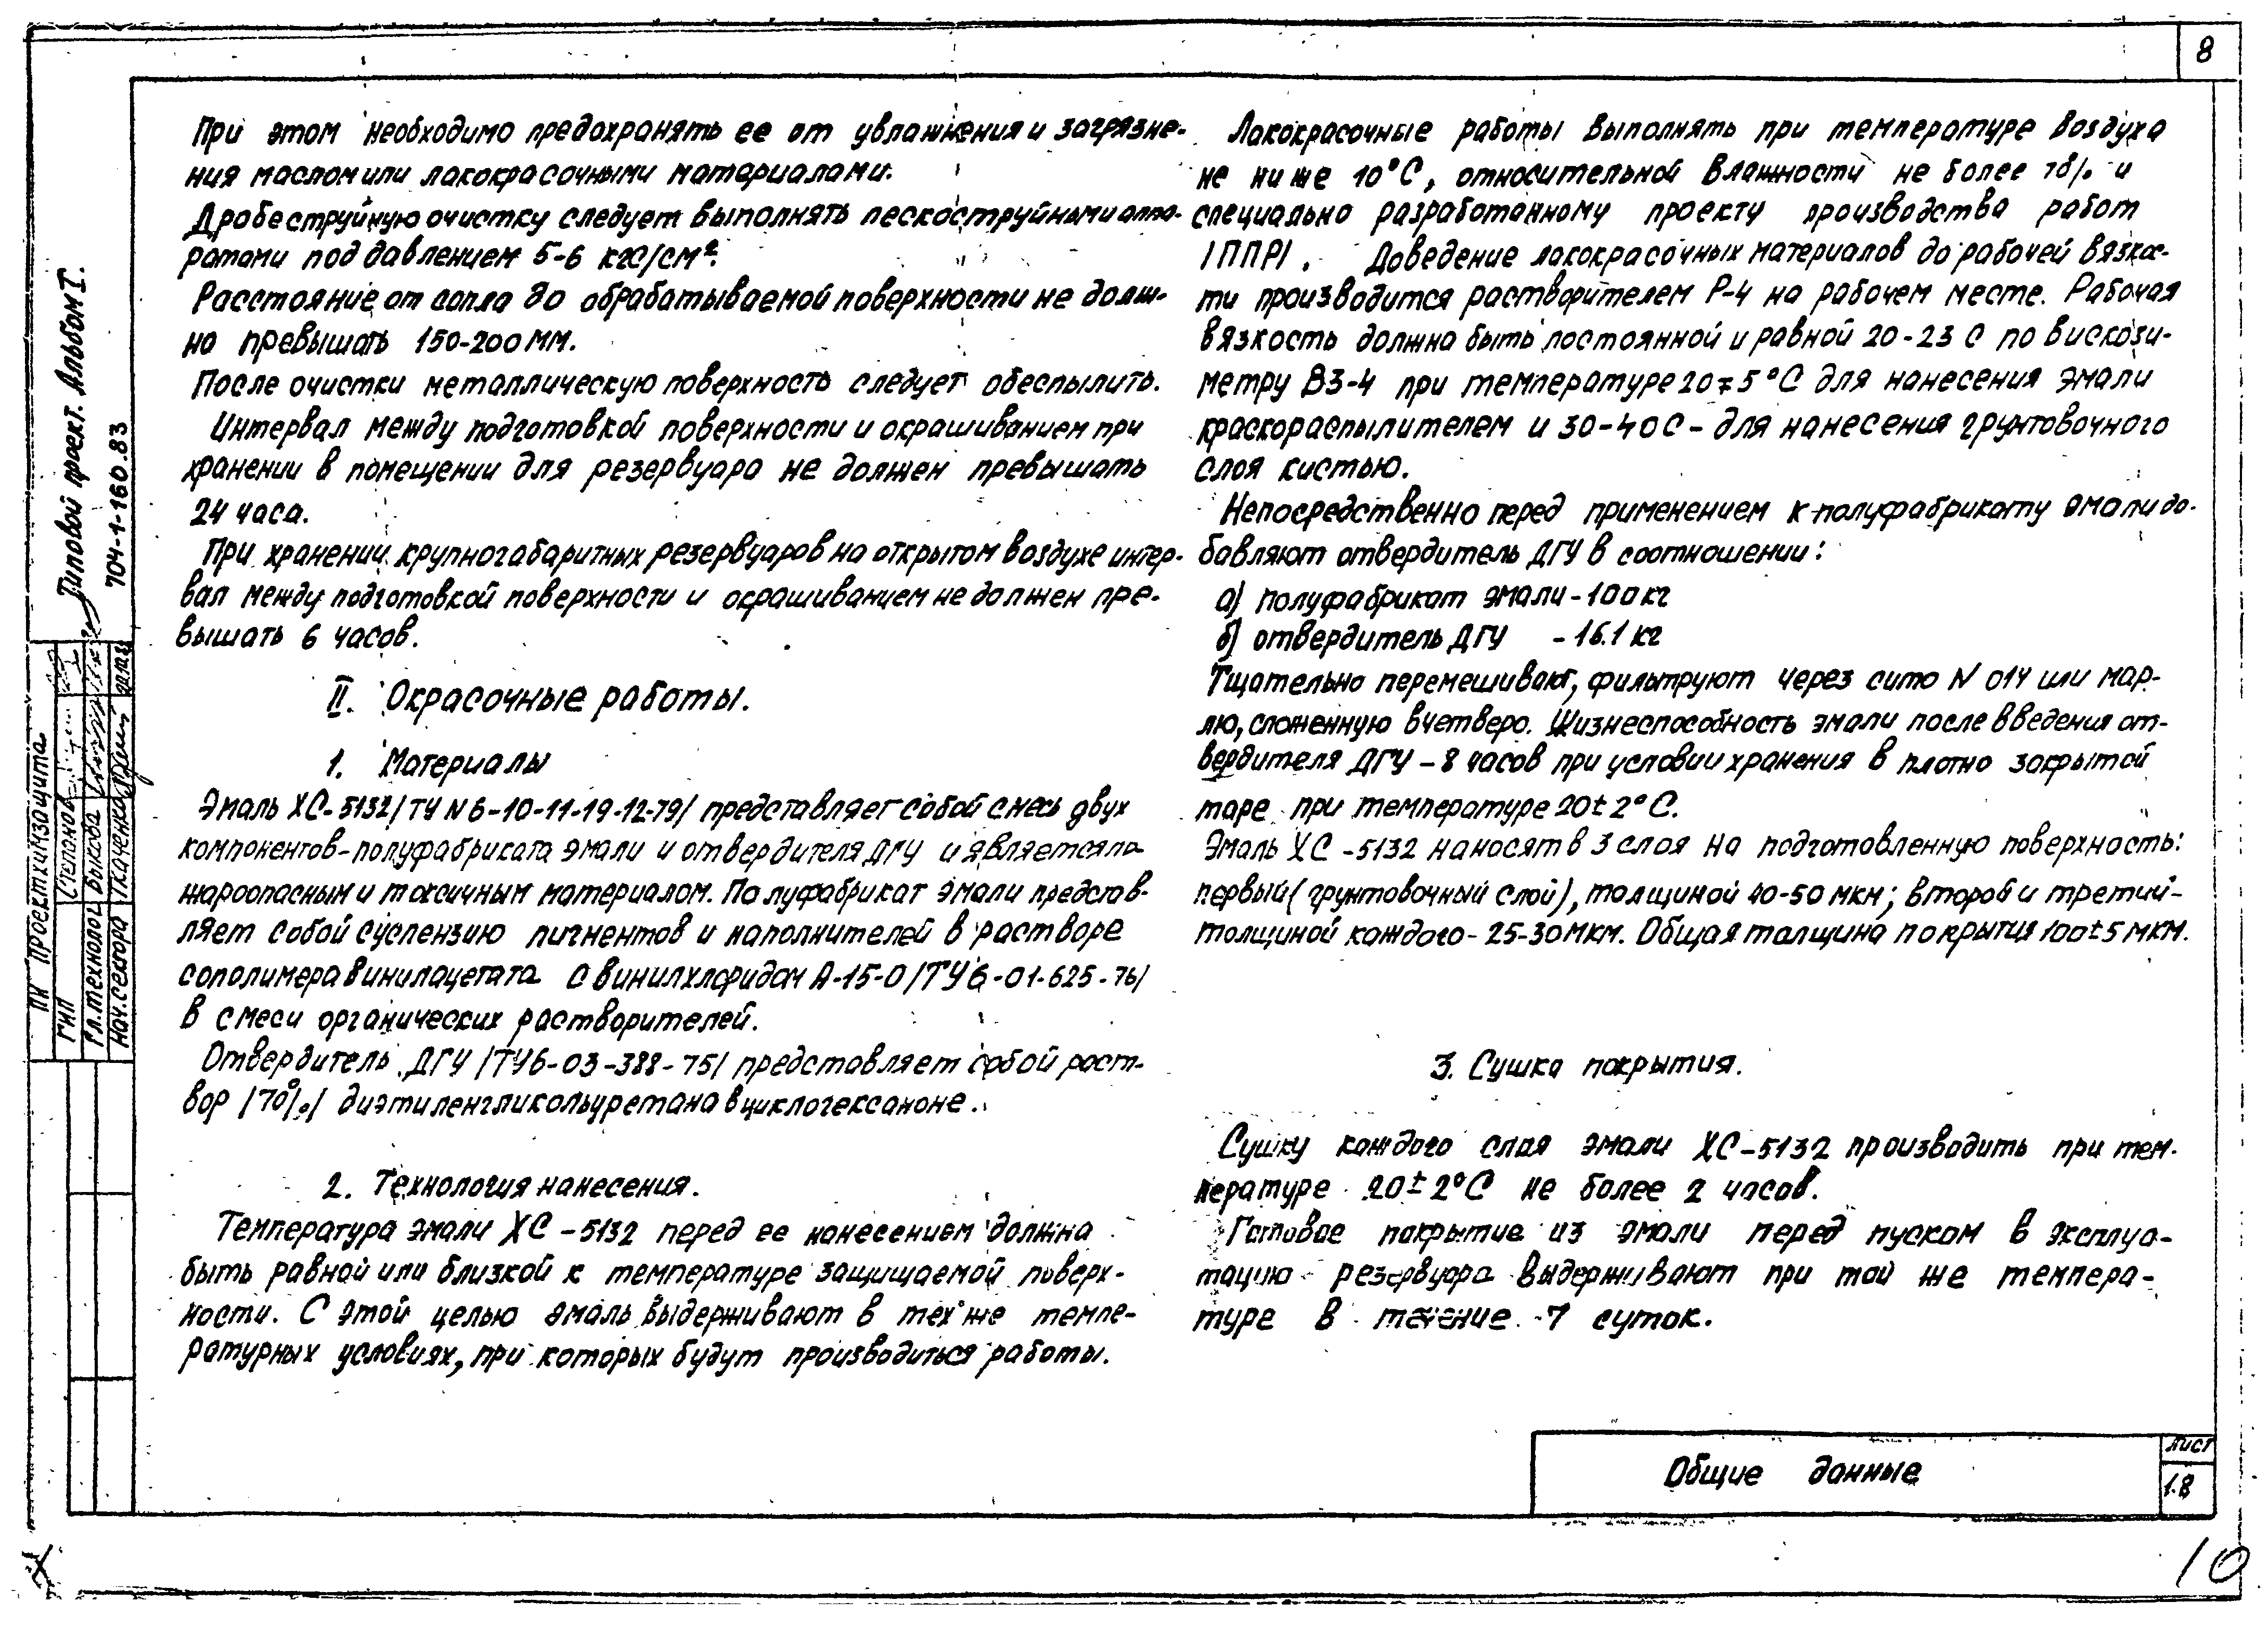 8
При этом необходимо предохранять ее от увлажнения и загрязне-
ния маслом или лакокрасочными материалами.
Дробеструйную очистку следует выполнять пескоструйными аппа-
ратами под давлением 5-6 кгс/см².
Расстояние от сопла до обрабатываемой поверхности не долж-
но превышать 150-200 мм.
После очистки металлическую поверхность следует обеспылить.
Интервал между подготовкой поверхности и окрашиванием при
хранении в помещении для резервуара не должен превышать
24 часа.
При хранении крупногабаритных резервуаров на открытом воздухе интер-
вал между подготовкой поверхности и окрашиванием не должен пре-
вышать 6 часов.
II. Окрасочные работы.
1. Материалы
Эмаль ХС-5132 /ТУ N 6-10-11-19-12-79/ представляет собой смесь двух
компонентов-полуфабриката эмали и отвердителя ДГУ и является по-
жароопасным и токсичным материалом. Полуфабрикат эмали представ-
ляет собой суспензию пигментов и наполнителей в растворе
сополимера винилацетата с винилхлоридом А-15-0 /ТУ 6-01-625-76/
в смеси органических растворителей.
Отвердитель ДГУ /ТУ6-03-388-75/ представляет собой раст-
вор /70%/ диэтиленгликольуретана в циклогексаноне.
2. Технология нанесения.
Температура эмали ХС-5132 перед ее нанесением должна
быть равной или близкой к температуре защищаемой поверх-
ности. С этой целью эмаль выдерживают в тех же темпе-
ратурных условиях, при которых будут производиться работы.
Лакокрасочные работы выполнять при температуре воздуха
не ниже 10°С, относительной влажности не более % и
специально разработанному проекту производства работ
/ППР/. Доведение лакокрасочных материалов до рабочей вязкос-
ти производится растворителем Р-4 на рабочем месте. Рабочая
вязкость должна быть постоянной и равной 20-23 с по вискози-
метру ВЗ-4 при температуре 20∓5°С для нанесения эмали
краскораспылителем и 30-40 с - для нанесения грунтовочного
слоя кистью.
Непосредственно перед применением к полуфабрикату эмали до-
бавляют отвердитель ДГУ в соотношении:
а) полуфабрикат эмали - 100 кг
б) отвердитель ДГУ - 16.1 кг
Тщательно перемешивают, фильтруют через сито N 014 или мар-
лю, сложенную вчетверо. Жизнеспособность эмали после введения от-
вердителя ДГУ - 8 часов при условии хранения в плотно закрытой
таре при температуре 20±2°С.
Эмаль ХС-5132 наносят в 3 слоя на подготовленную поверхность:
первый (грунтовочный слой), толщиной 40-50 мкм; второй и третий-
толщиной каждого - 25-30мкм. Общая толщина покрытия 100±5 мкм.
3. Сушка покрытия.
Сушку каждого слоя эмали ХС-5132 производить при тем-
пературе 20±2°С не более 2 часов.
Готовое покрытие из эмали перед пуском в эксплуа-
тацию резервуара выдерживают при той же темпера-
туре в течение 7 суток.
Типовой проект. Альбом I.
704-1-160.83
ПИ Проектхимзащита
ГИП Степанов
Гл.технолог Быкова
Нач.сектора Ткаченко
Общие данные
Лист
1.8
10